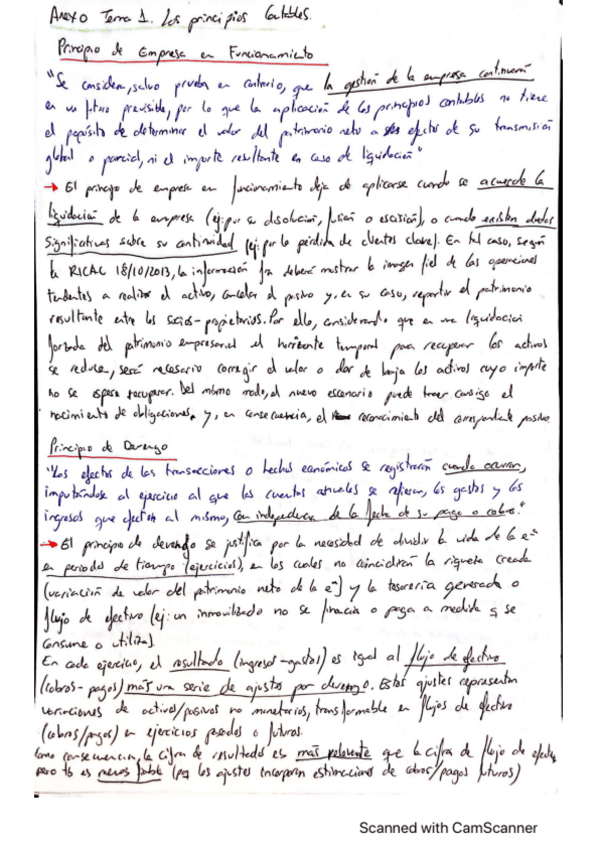 Anexo Tema 1. Los principios Contables.
Principio de Empresa en Funcionamiento
"Se considera, salvo prueba en contrario, que la gestión de la empresa continuará
en un futuro previsible, por lo que la aplicación de los principios contables no tiene
el propósito de determinar el valor del patrimonio neto a efectos de su transmisión
global o parcial, ni el importe resultante en caso de liquidación"
→ El principio de empresa en funcionamiento deja de aplicarse cuando se acuerde la
liquidación de la empresa (ej: por su disolución, fusión o escisión), o cuando existen dudas
significativas sobre su continuidad (ej: por la pérdida de clientes clave). En tal caso, según
la RICAC 18/10/2013, la información fra deberá mostrar la imagen fiel de las operaciones
tendentes a realizar el activo, cancelar el pasivo y, en su caso, repartir el patrimonio
resultante entre los socios-propietarios. Por ello, considerando que en una liquidación
forzada del patrimonio empresarial el horizonte temporal para recuperar los activos
se reduce, será necesario corregir el valor o dar de baja los activos cuyo importe
no se espera recuperar. Del mismo modo, el nuevo escenario puede traer consigo el
nacimiento de obligaciones, y, en consecuencia, el reconocimiento del correspondiente pasivo.
Principio de Devengo
"Los efectos de las transacciones o hechos económicos se registrarán cuando ocurran,
imputándose al ejercicio al que las cuentas anuales se refieran, los gastos y los
ingresos que afecten al mismo, con independencia de la fecha de su pago o cobro."
→ El principio de devengo se justifica por la necesidad de dividir la vida de la eª
en periodos de tiempo (ejercicios), en los cuales no coincidirán la riqueza creada
(variación de valor del patrimonio neto de la eª) y la tesorería generada o
flujo de efectivo (ej: un inmovilizado no se financia o paga a medida q se
consume o utiliza).
En cada ejercicio, el resultado (ingresos-gastos) es igual al flujo de efectivo
(cobros-pagos) más una serie de ajustes por devengo. Estos ajustes representan
variaciones de activos/pasivos no monetarios, transformable en flujos de efectivo
(cobros/pagos) en ejercicios pasados o futuros.
Como consecuencia, la cifra de resultados es más relevante que la cifra de flujo de efectivo,
pero tb es menos fiable (pq los ajustes incorporan estimaciones de cobros/pagos futuros)
Scanned with CamScanner